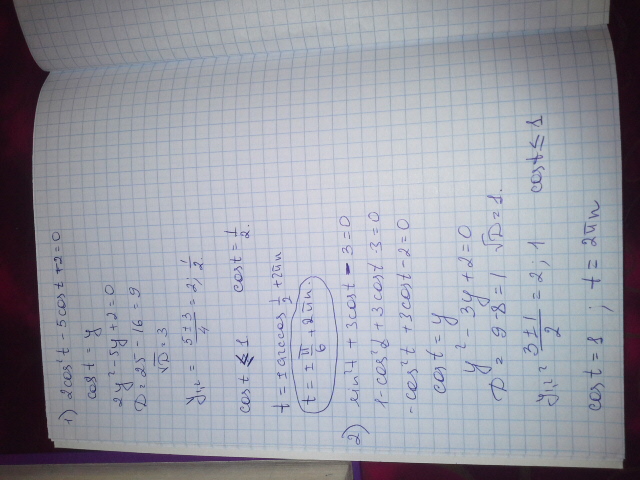 1) 2cos²t - 5cost + 2 = 0
cost = y
2y² - 5y + 2 = 0
D = 25 - 16 = 9
√D = 3
y₁,₂ = (5 ± 3)/4 = 2; 1/2
cost ≤ 1 cost = 1/2.
t = ± arccos 1/2 + 2πn
t = ± π/6 + 2πn.
2) sin²t + 3cost - 3 = 0
1 - cos²t + 3cost - 3 = 0
- cos²t + 3cost - 2 = 0
cost = y
y² - 3y + 2 = 0
D = 9 - 8 = 1 √D = 1.
y₁,₂ = (3 ± 1)/2 = 2; 1 cost ≤ 1
cost = 1 ; t = 2πn